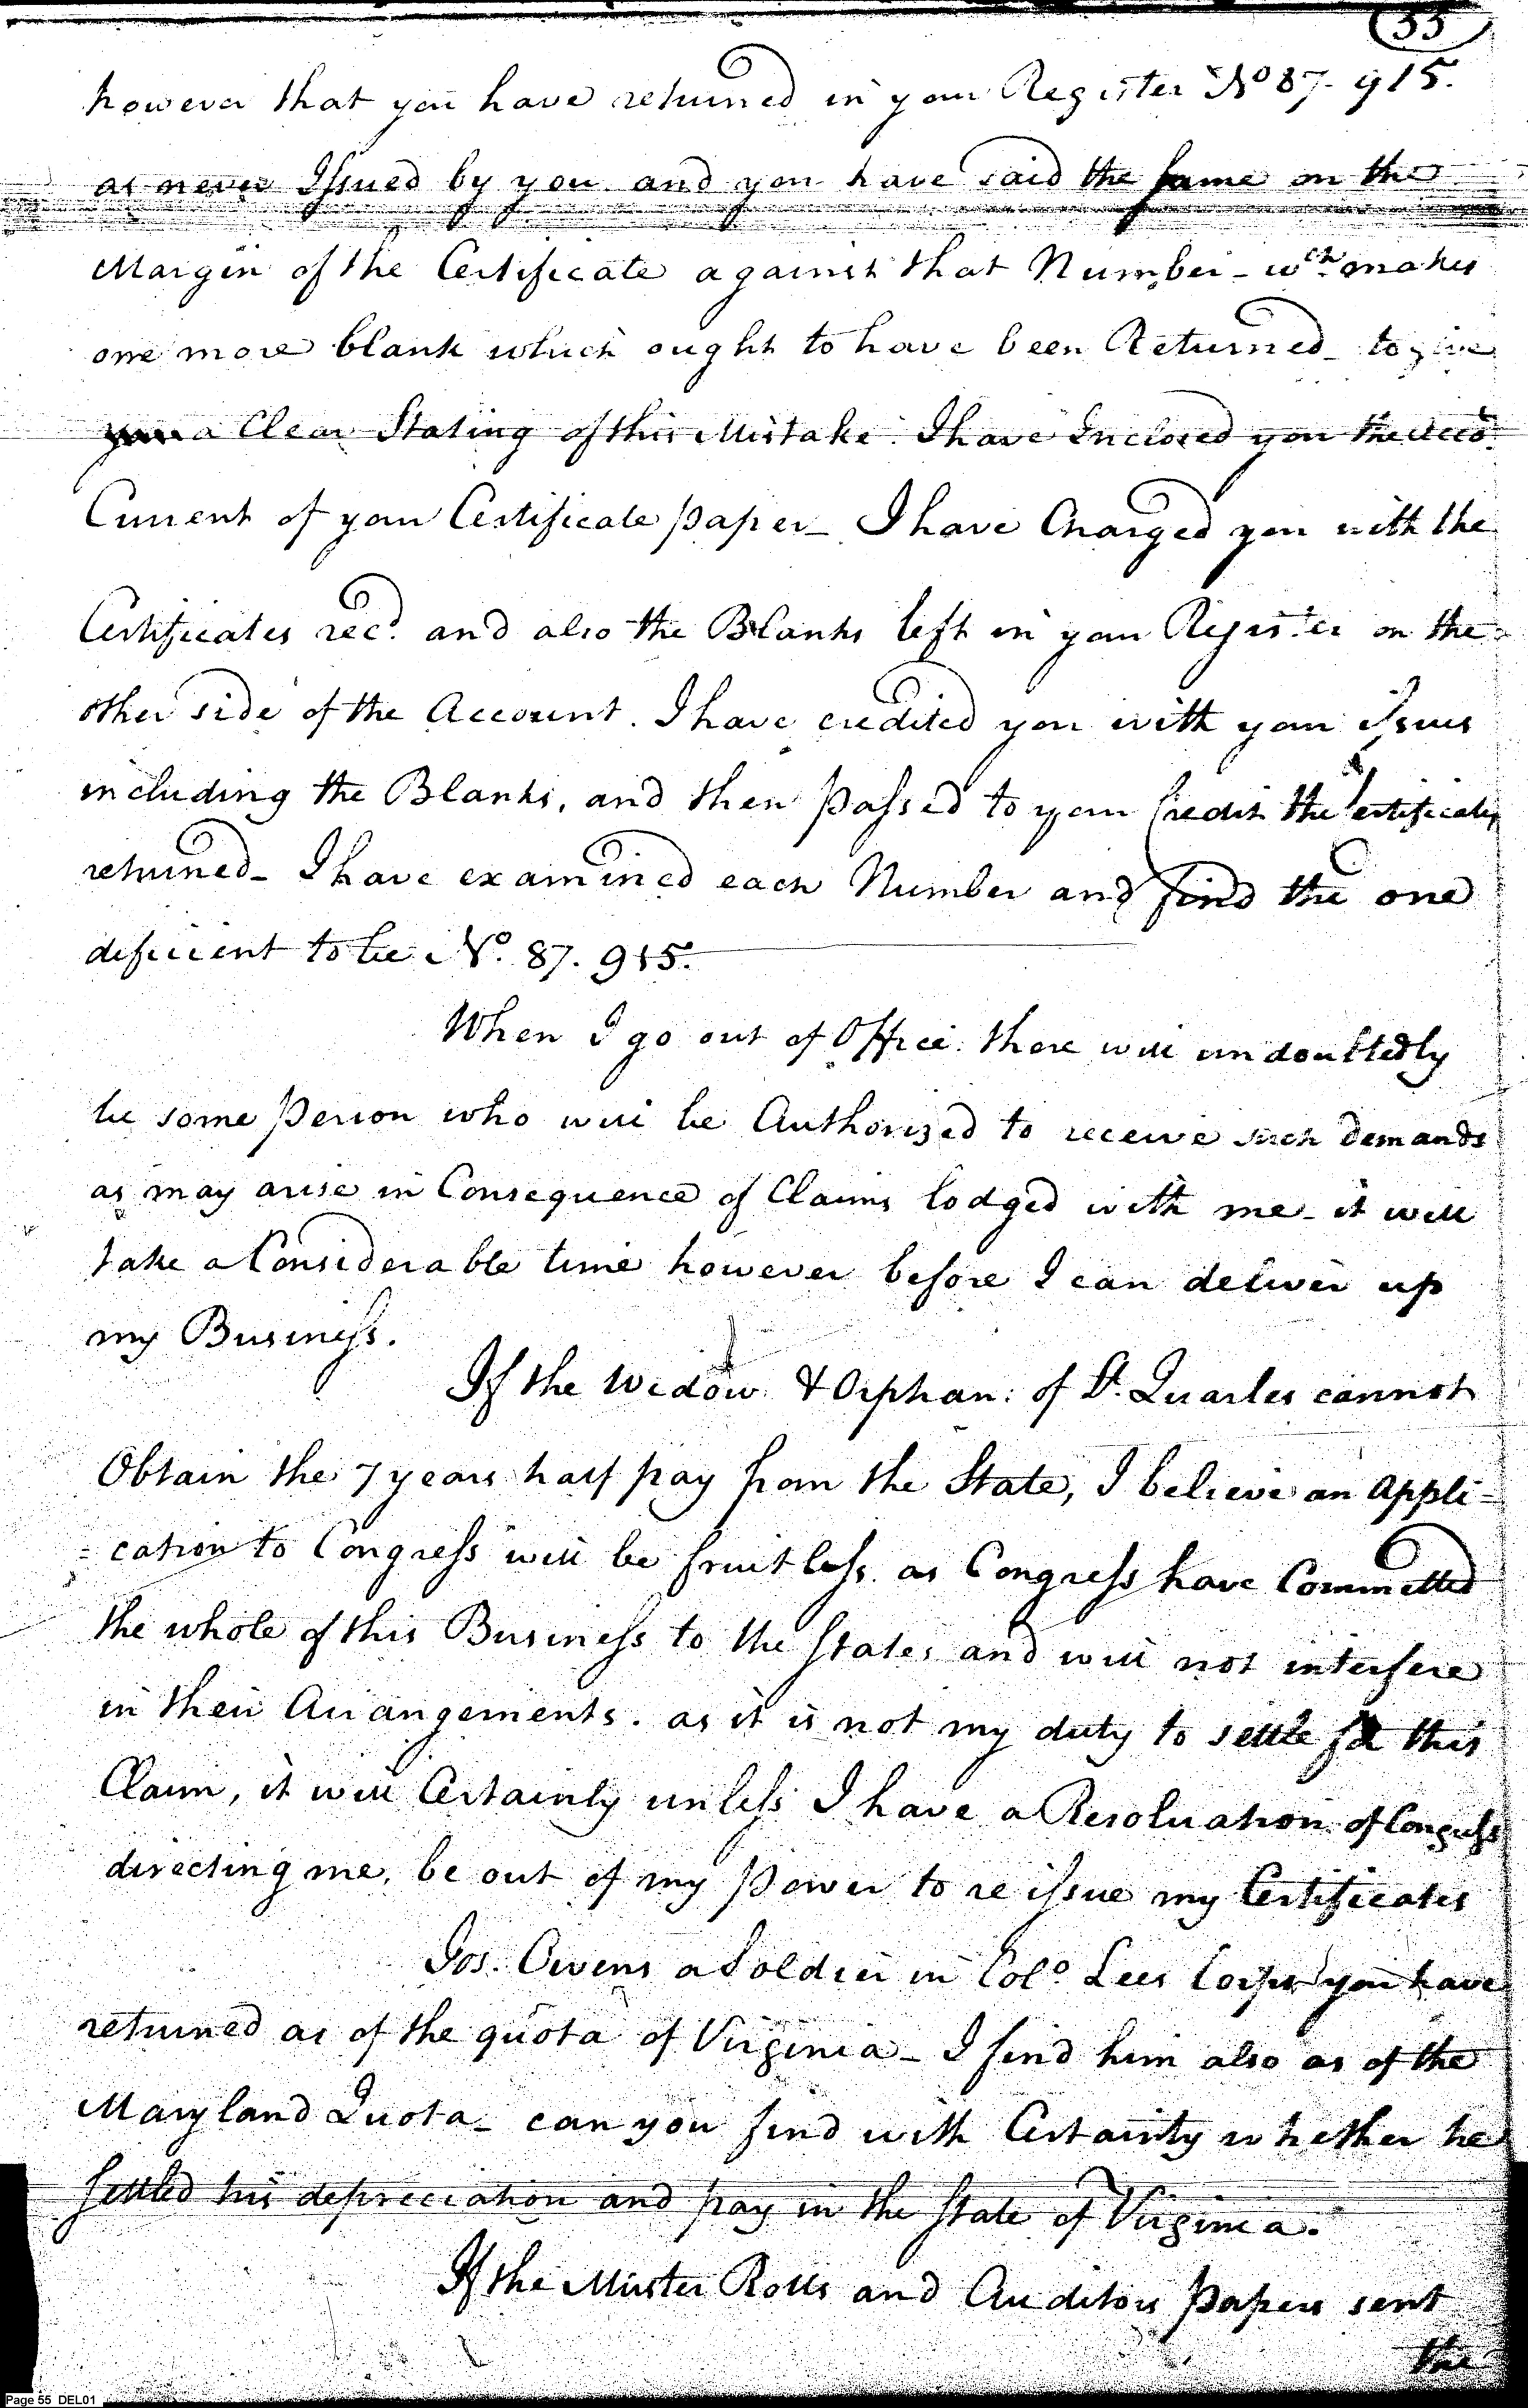 55
however that you have returned in your Register No 87. 915.
as never Issued by you and you have said the same on the
Margin of the Certificate against that Number_ wch. makes
one more blank which ought to have been Returned_ to give
you a Clear Stating of this Mistake. I have Inclosed you the Acco.
Current of your Certificate paper_ I have Charged you with the
Certificates recd. and also the Blanks left in your Register on the
other side of the Account. I have credited you with your issues
including the Blanks, and then passed to your Credit the Certificates
returned_ I have examined each Number and find the one
deficient to be No. 87. 915.
When I go out of Office. there will undoubtedly
be some Person who will be Authorized to receive such Demands
as may arise in Consequence of Claims lodged with me_ it will
take a Considerable time however before I can deliver up
my Business.
If the Widow & Orphan: of Lt. Quarles cannot
Obtain the 7 years half pay from the State, I believe an Appli=
=cation to Congress will be fruitless. as Congress have Committed
the whole of this Business to the States and will not interfere
in their Arrangements. as it is not my duty to settle this
Claim, it will Certainly unless I have a Resoluation of Congress
directing me, be out of my Power to re issue my Certificates
Jos. Owens a Soldier in Colo. Lees Corps you have
returned as of the quota of Virginia_ I find him also as of the
Maryland Quota_ can you find with Certainty whether he
settled his depreciation and pay in the State of Virginia.
If the Muster Rolls and Auditors papers sent
the
Page 55 DEL01